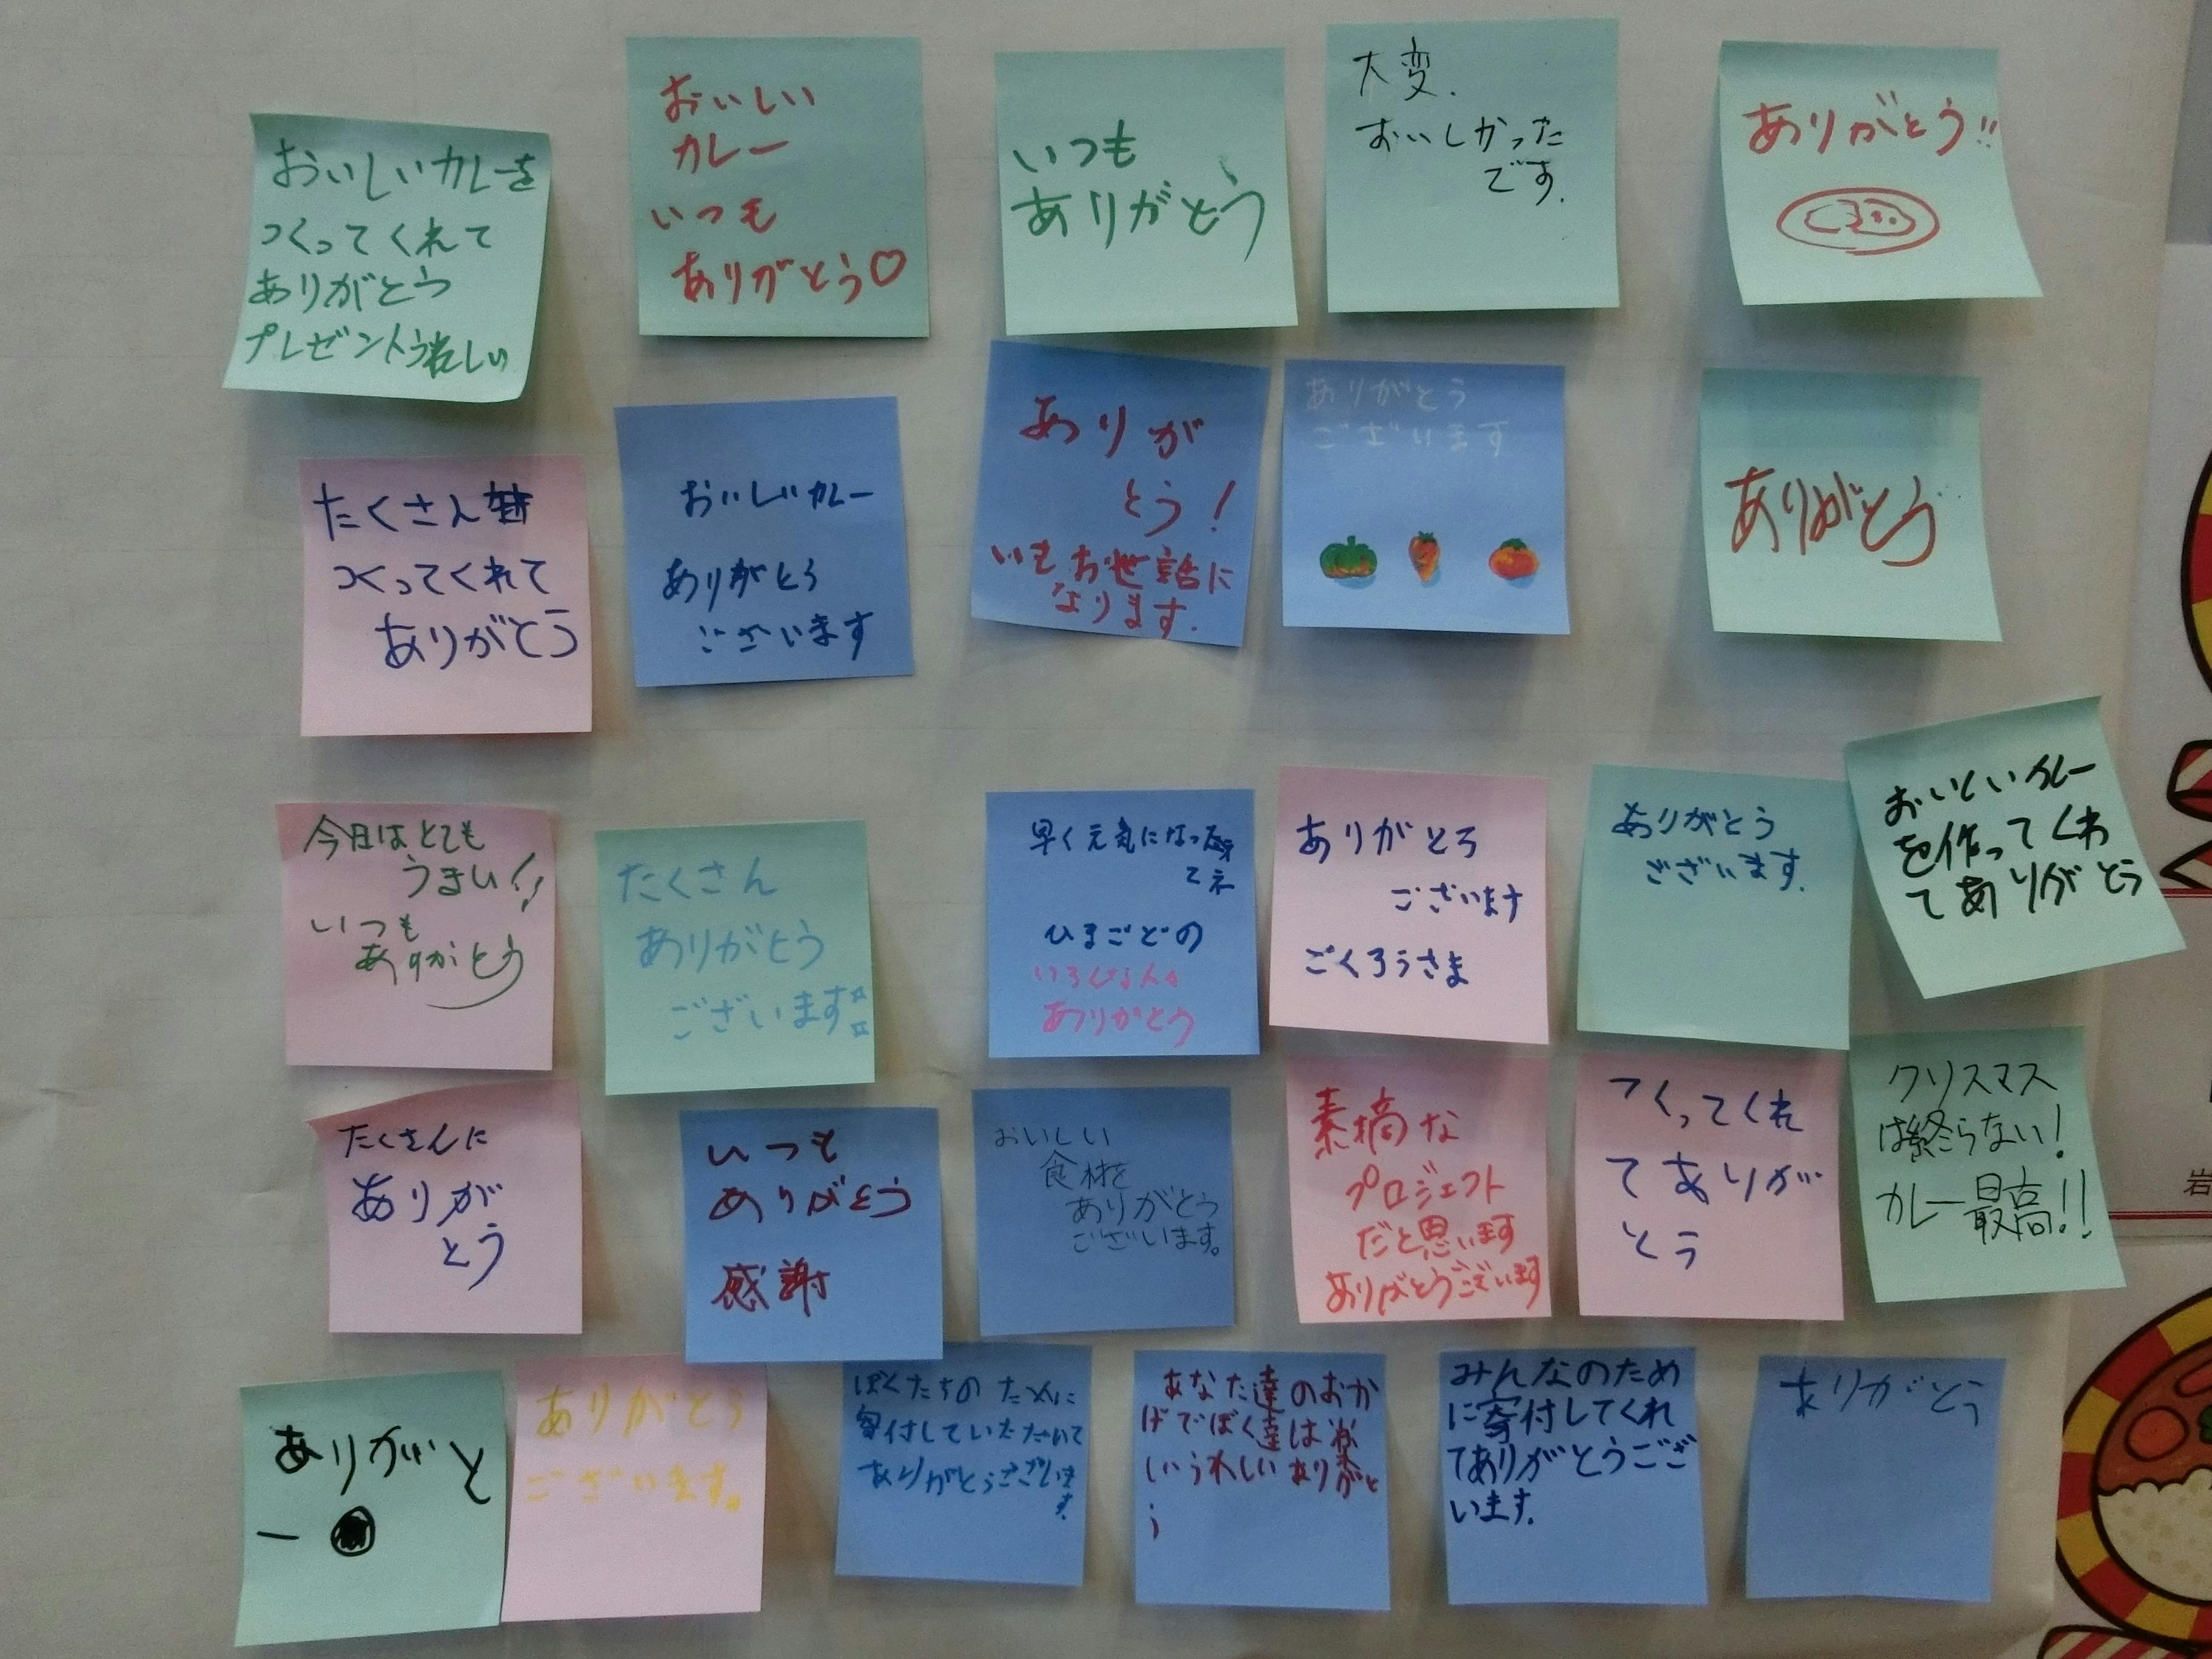 おいしいカレーを
つくってくれて
ありがとう
プレゼントうれしい
おいしい
カレー
いつも
ありがとう♡
いつも
ありがとう
大変.
おいしかった
です.
ありがとう!!
たくさん
つくってくれて
ありがとう
おいしいカレー
ありがとう
ございます
ありが
とう!
お世話に
なります.
ありがとう
ございます
ありがとう
今日はとても
うまい!!
いつも
ありがとう
たくさん
ありがとう
ございます
早く元気になっ
てネ
ひまごどの
ありがとう
ありがとう
ございます
ごくろうさま
ありがとう
ございます.
おいしいカレー
を作ってくれ
てありがとう
たくさんに
ありが
とう
いつも
ありがとう
感謝
おいしい
食材を
ありがとう
ございます。
素摘な
プロジェクト
だと思います
ありがとうございます
つくってくれ
てありが
とう
クリスマス
は終らない!
カレー最高!!
ありがと
ー
ありがとう
ございます。
ぼくたちのために
寄付していただいて
ありがとうございま
す.
あなた達のおか
げでぼく達は
いうれしいありがと
う
みんなのため
に寄付してくれ
てありがとうござ
います.
ありがとう
岩